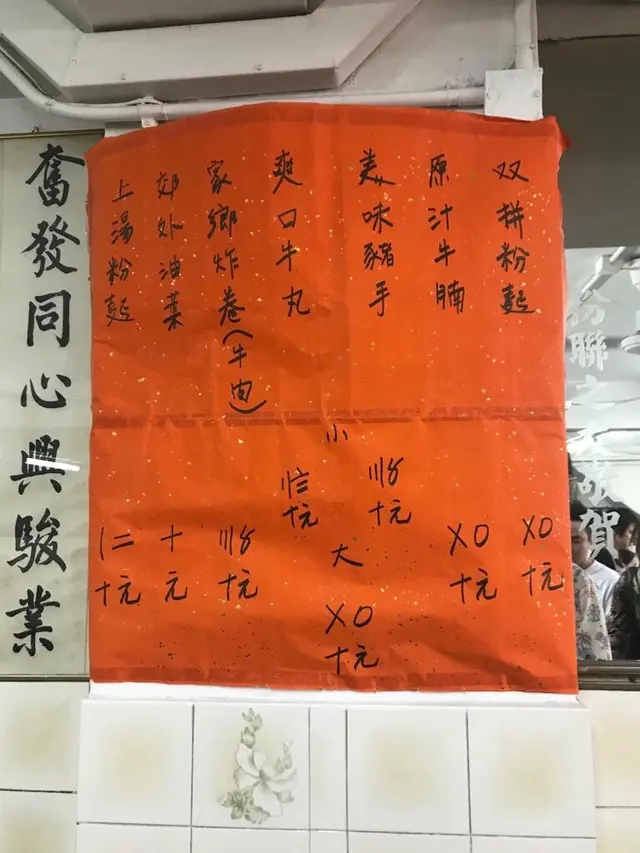 双拼粉麵
〤〇
十元
原汁牛腩
〤〇
十元
美味豬手
小
〣〥
十元
大
〤〇
十元
爽口牛丸
十元
家鄉炸卷(牛肉)
〣〥
十元
郊外油菜
十元
上湯粉麵
十元
奮發同心興駿業
聯之
敬賀